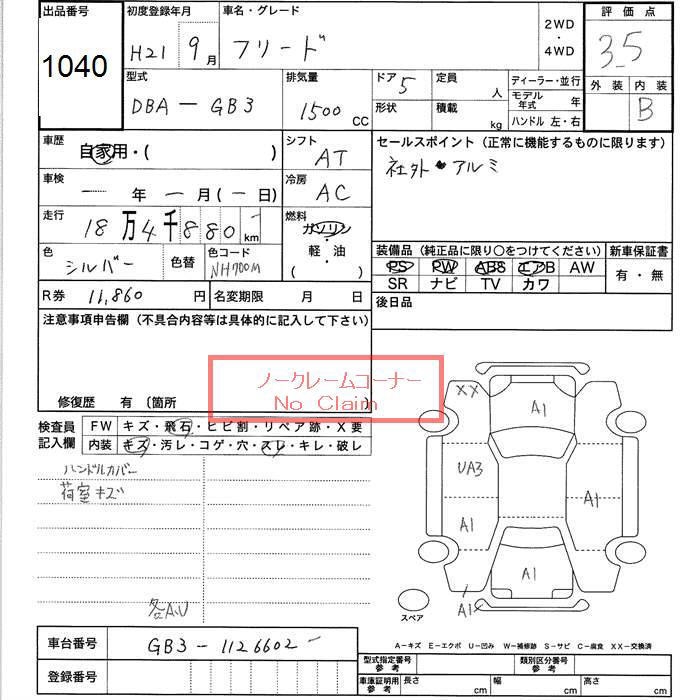 出品番号 1040
初度登録年月 H21 9月
車名・グレード フリード
2WD・4WD
評価点 3.5
型式 DBA-GB3
排気量 1500 CC
ドア 5
定員 人
形状
積載 kg
ディーラー・並行
モデル年式 年
ハンドル 左・右
外装 内装 B
車歴 自家用・( )
シフト AT
セールスポイント（正常に機能するものに限ります）
社外 アルミ
車検 ― 年 ― 月(― 日)
冷房 AC
走行 18万4千880 km
燃料 ガソリン
軽・油
( )
色 シルバー 色替 色コード NH700M
装備品（純正品に限り〇をつけてください） 新車保証書
PS PW ABS エアB AW 有・無
SR ナビ TV カワ
R券 11,860 円 名変期限 月 日
後日品
注意事項申告欄（不具合内容等は具体的に記入して下さい）
ノークレームコーナー
No Claim
修復歴 有 （箇所
検査員記入欄
FW キズ・飛石・ヒビ割・リペア跡・X要
内装 キズ・汚レ・コゲ・穴・スレ・キレ・破レ
ハンドルカバー
荷室キズ
各A.U
XX
A1
UA3
A1
A1
A1
A1
スペア
A-キズ E-エクボ U-凹み W-補修跡 S-サビ C-腐食 XX-交換済
車台番号 GB3-1126602
登録番号
型式指定番号 参考
類別区分番号 参考
車庫証明用 参考 長さ cm 幅 cm 高さ cm